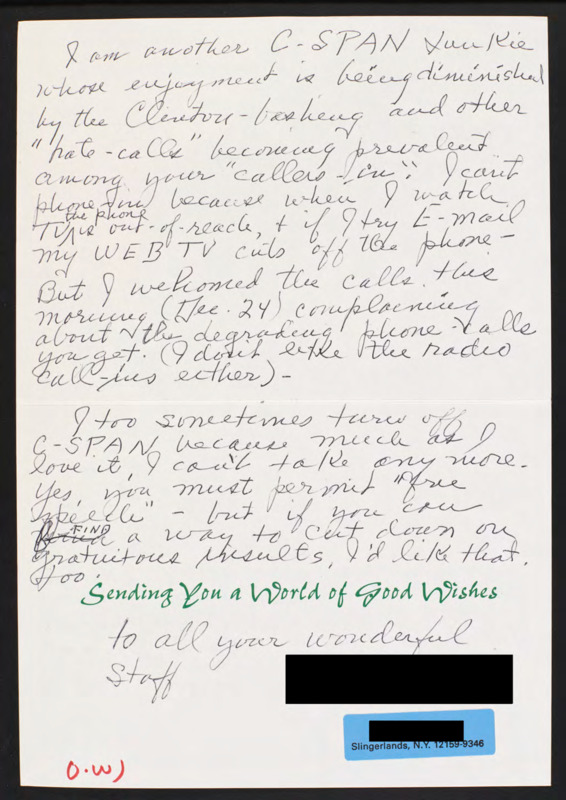 I am another C-SPAN Junkie
whose enjoyment is being diminished
by the Clinton-bashing and other
"hate-calls" becoming prevalent
among your "callers-in". I can't
phone-in because when I watch
TV, the phone is out-of-reach, + if I try E-mail
my WEB TV cuts off the phone -
But I welcomed the calls this
morning (Dec. 24) complaining
about the degrading phone-calls
you get. (I don't like the radio
call-ins either) -
I too sometimes turn off
C-SPAN because much as I
love it, I can't take any more.
Yes, you must permit "free
speech" - but if you can
FIND a way to cut down on
gratuitous insults, I'd like that.
too.
Sending You a World of Good Wishes
to all your wonderful
Staff
Slingerlands, N.Y. 12159-9346